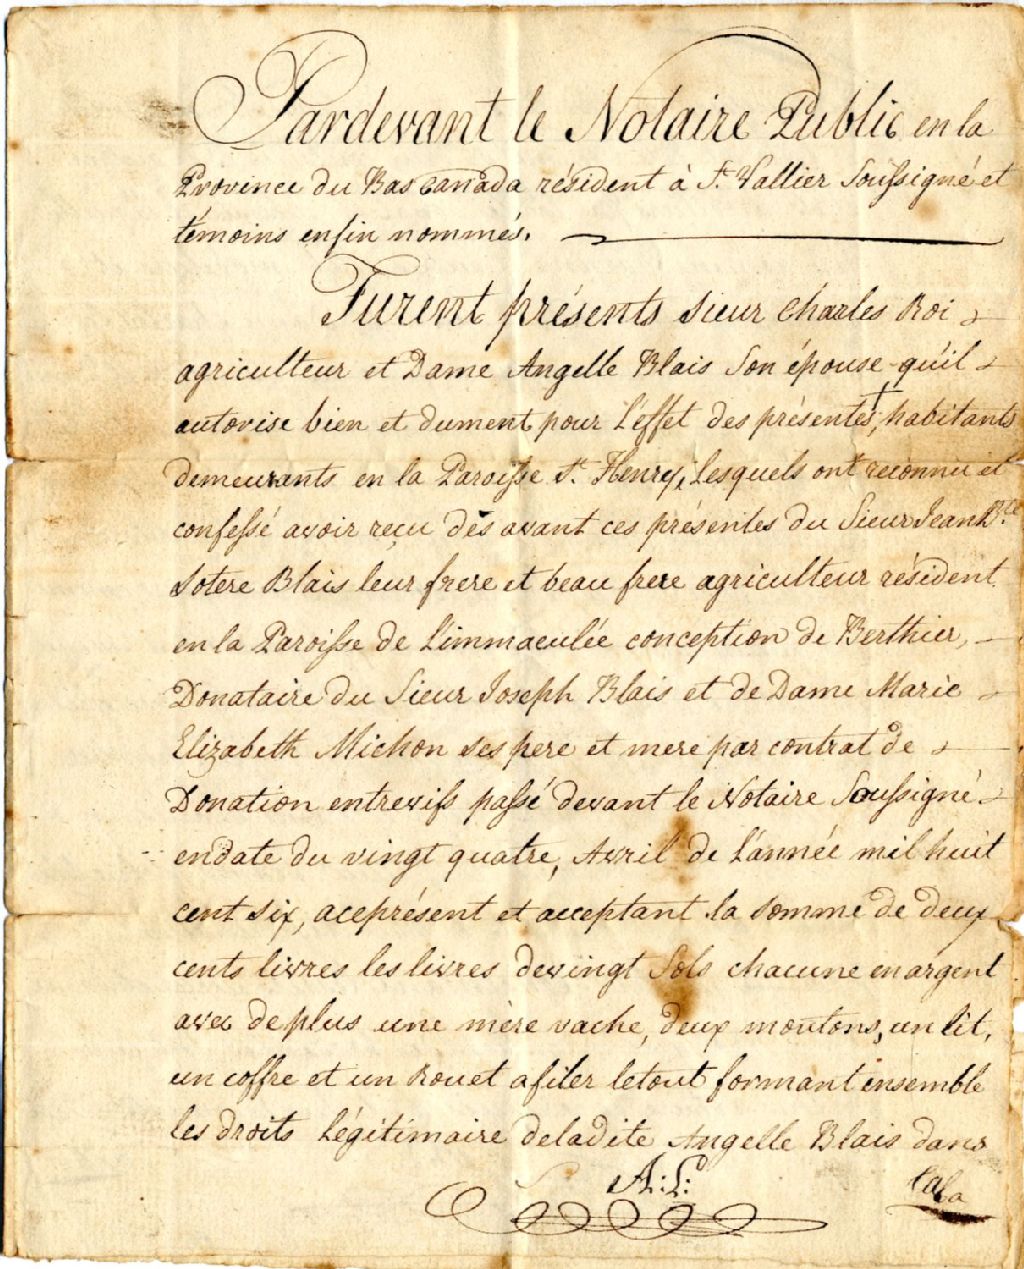 Pardevant le Notaire Public en la
Province du Bas Canada résident à St. Vallier Soussigné et
témoins enfin nommés.
Furent présents Sieur Charles Roi
agriculteur et Dame Angelle Blais Son épouse qu'il
autorise bien et dument pour L'éffet des présentes, habitants
demeurants en la Paroisse St. Henry, Lesquels ont reconnu et
confessé avoir reçu dès avant ces présentes du Sieur Jean Bte
Sotere Blais leur frere et beau frere agriculteur résident
en la Paroisse de L'immaculée conception de Berthier,
Donataire du Sieur Joseph Blais et de Dame Marie
Elizabeth Michon ses pere et mere par contrat de
Donation entrevifs passé devant le Notaire Soussigné
endate du vingt quatre, Avril de L'année mil huit
cent six, aceprésent et acceptant la somme de deux
cents livres les livres devingt Sols chacune en argent
avec deplus une mère vache, deux moutons, un lit,
un coffre et un Rouet afiler letout formant ensemble
les droits Légitimaire deladite Angelle Blais dans
A: L:
la